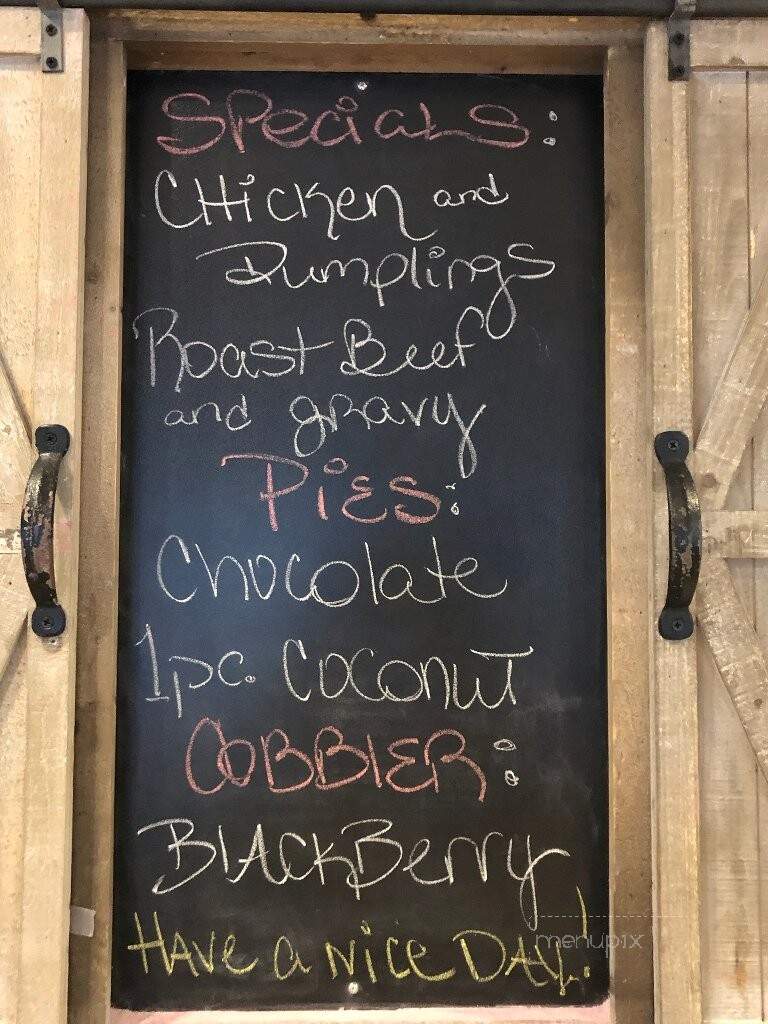 Specials:
Chicken and
Dumplings
Roast Beef
and gravy
Pies:
Chocolate
1pc. Coconut
COBBlER:
BlAckBerry
HAVe a Nice DAY!
menupix